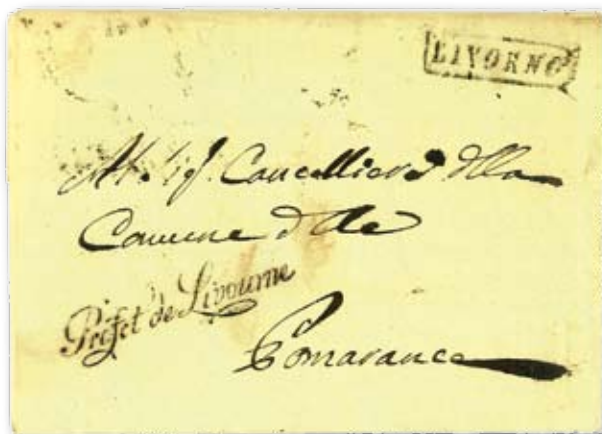 LIVORNO
Cancelliere della
Comune delle
Préfet de Livourne
Pomarance